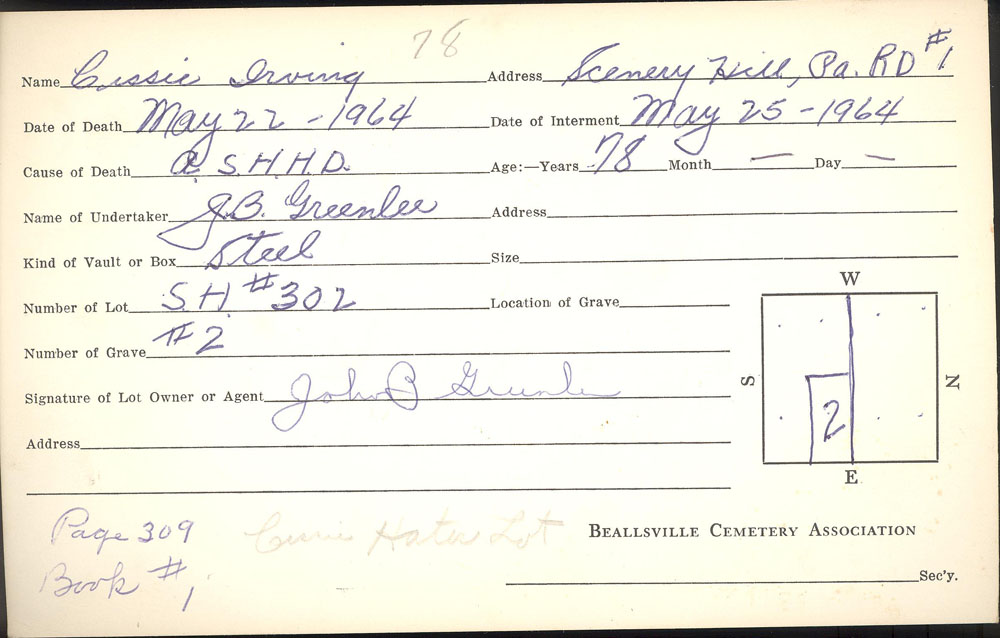 78
Name Cissie Irving Address Scenery Hill, Pa. RD #1
Date of Death May 22 - 1964 Date of Interment May 25 - 1964
Cause of Death A. S. H. H. D. Age:—Years 78 Month — Day —
Name of Undertaker J.B. Greenlee Address
Kind of Vault or Box Steel Size
Number of Lot S.H. #302 Location of Grave
Number of Grave #2
Signature of Lot Owner or Agent John B Greenlee
Address
W
S
N
2
E
Page 309
Book #1
Lot
BEALLSVILLE CEMETERY ASSOCIATION
Sec'y.